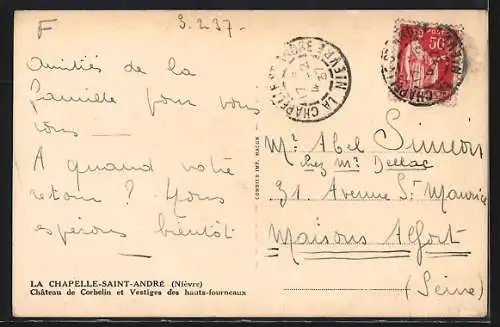 F
3.2.37-
amitiés de la
famille pour vous
tous —
A quand votre
retour ? Nous
espérons bientôt
LA CHAPELLE-SAINT-ANDRÉ (Nièvre)
Château de Corbelin et Vestiges des hauts-fourneaux
COMBIER IMP. MACON
LA CHAPELLE ST
NIÈVRE
POSTES
50
Mr. Abel Simeon
chez Mr Dellac
31. Avenue St Maurice
Maisons Alfort
(Seine)